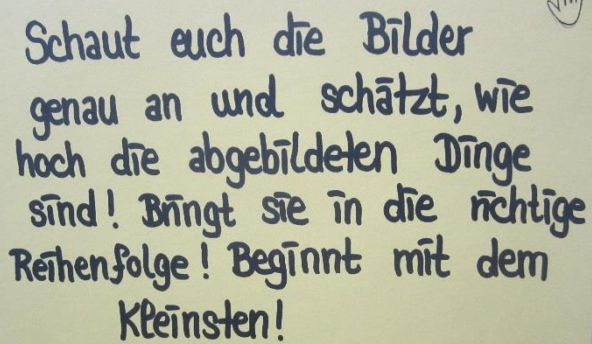 Schaut euch die Bilder
genau an und schätzt, wie
hoch die abgebildeten Dinge
sind! Bringt sie in die richtige
Reihenfolge! Beginnt mit dem
Kleinsten!